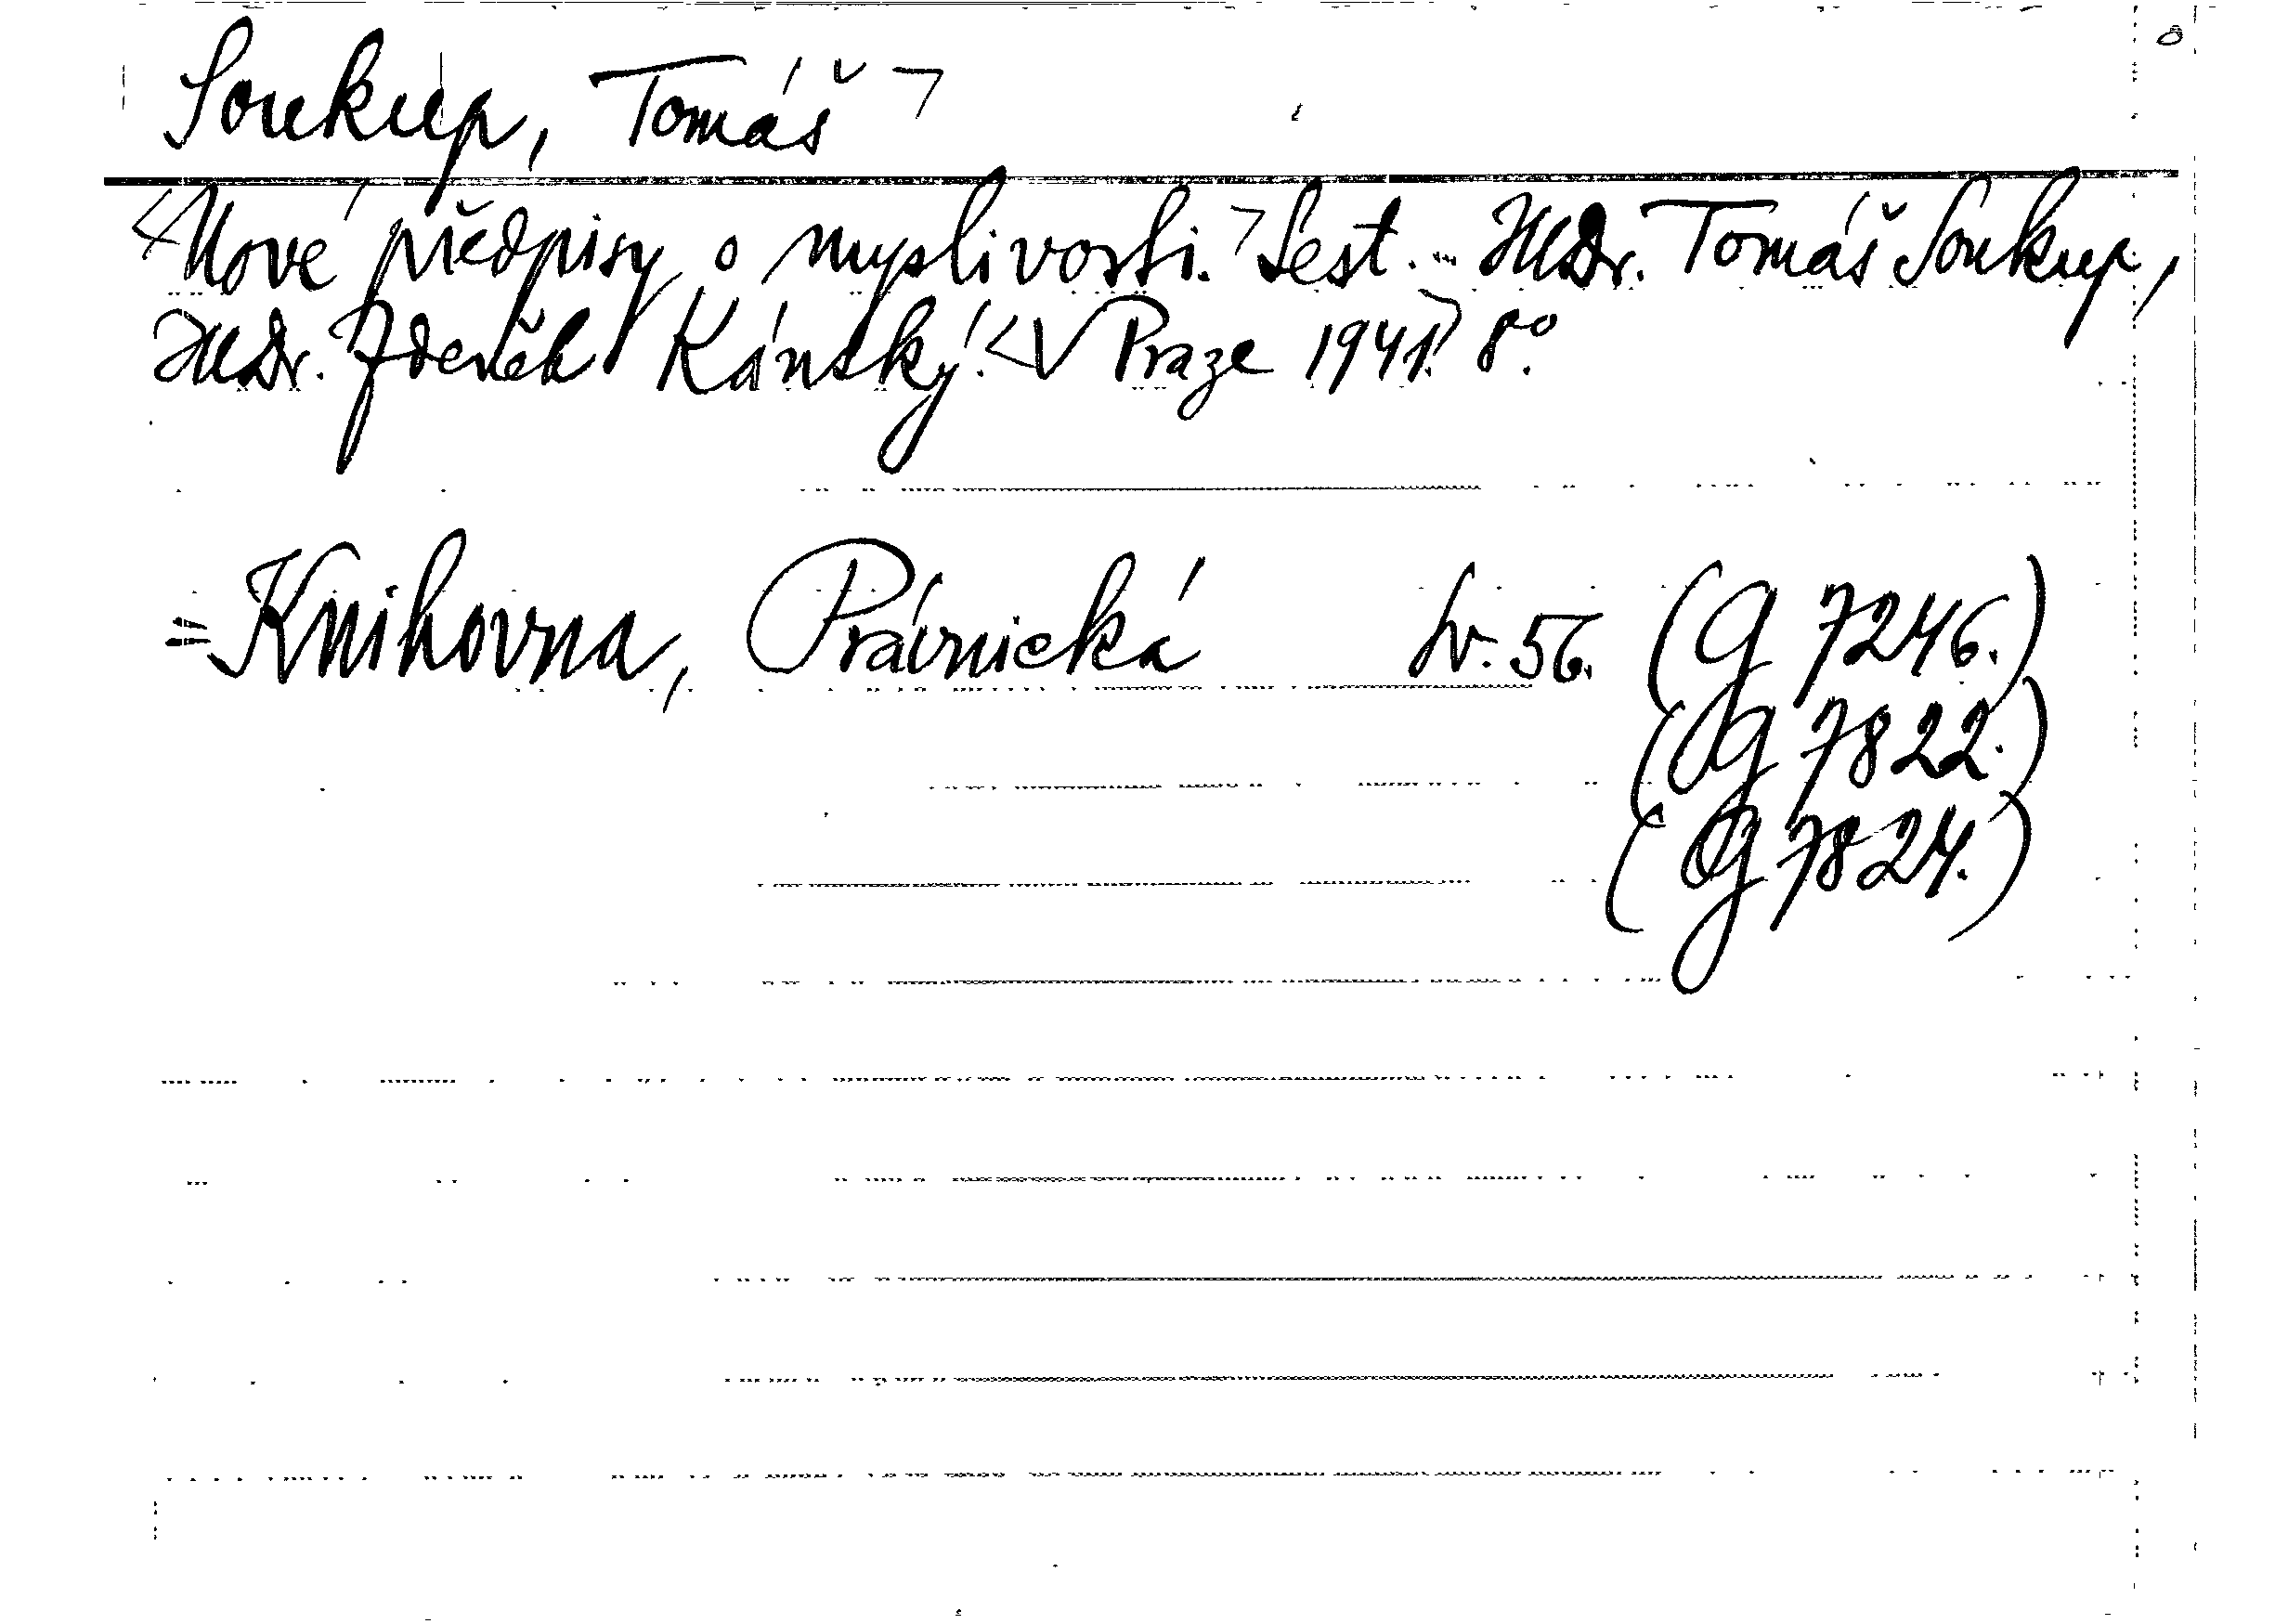 Soukup, Tomáš ㄱ
<Nové předpisy o myslivosti.ㄱ Sest. ... JUDr. Tomáš Soukup,
JUDr. Zdeněk Kánský. <V Praze 1941.> 8°.
= Knihovna, Právnická sv. 56. (G 7246.)
(G 7822.)
(G 7824.)